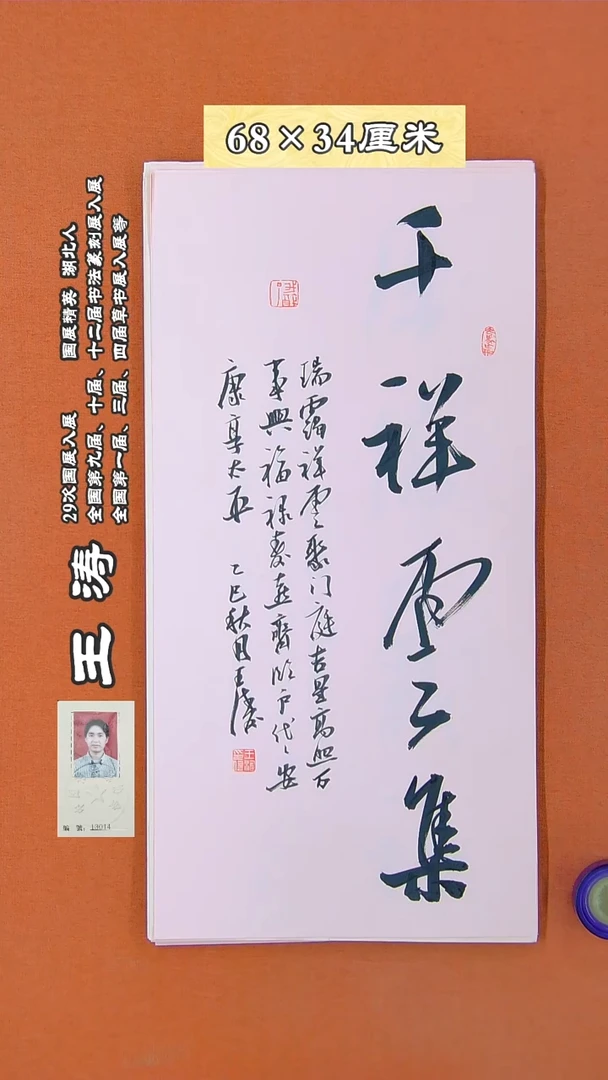 68×34厘米
千祥雲集
瑞靄祥雲聚门庭吉星高照万
事興福禄壽喜齊临户代代安
康享太平 乙巳秋月王涛
29次国展入展 国展精英 湖北人
全国第九届、十届、十二届书法篆刻展入展
全国第一届、三届、四届草书展入展等
王涛
编 号: 13014